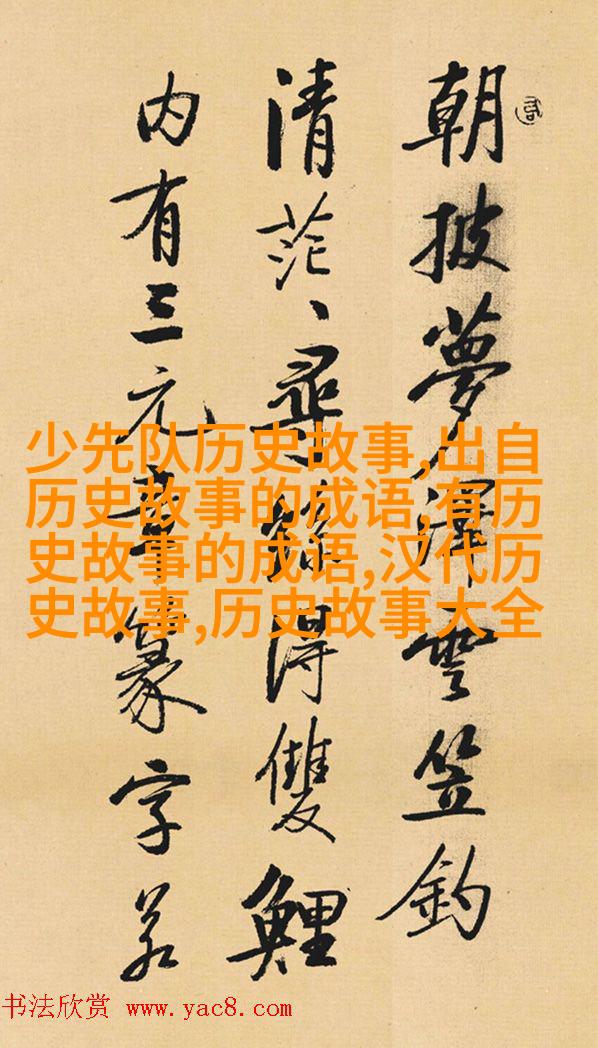 朝披夢澤雲笠釣
清茫、尋得雙鯉
内有三元章篆字若
少先队历史故事,出自
历史故事的成语,有历
史故事的成语,汉代历
史故事,历史故事大全
书法欣赏 www.yac8.com